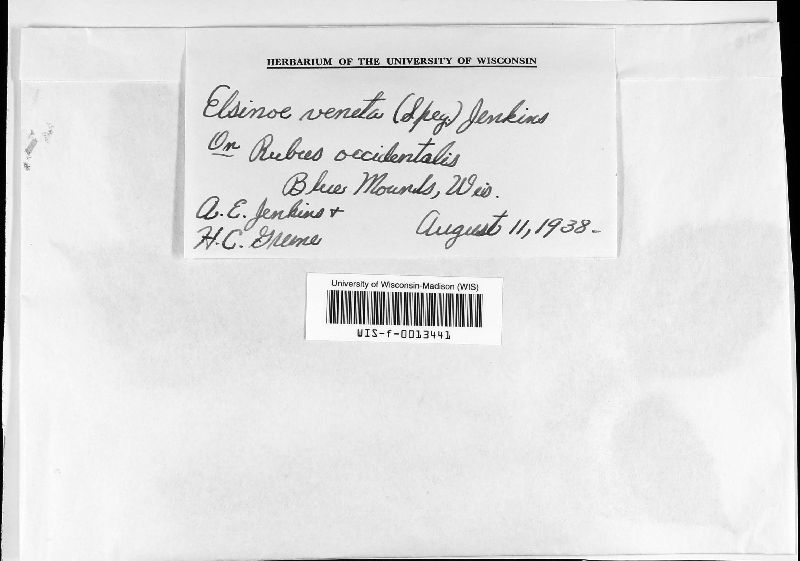 HERBARIUM OF THE UNIVERSITY OF WISCONSIN
Elsinoe veneta (Speg.) Jenkins
On Rubus occidentalis
Blue Mounds, Wis.
A. E. Jenkins +
H. C. Greene
August 11, 1938-
University of Wisconsin-Madison (WIS)
WIS-f-0013441